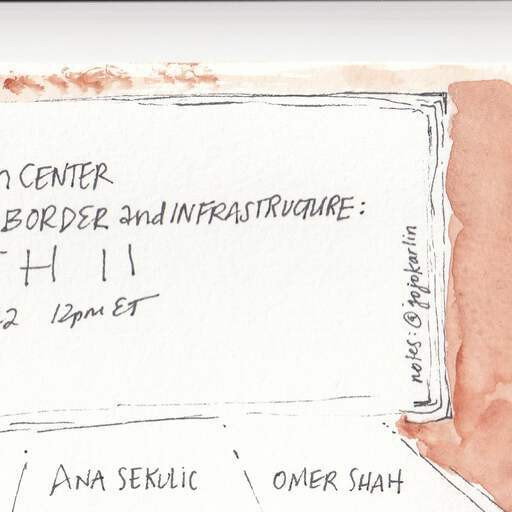 CENTER
BORDER and INFRASTRUCTURE:
H II
2 12pm ET
notes: @jojokarlin
ANA SEKULIC
OMER SHAH